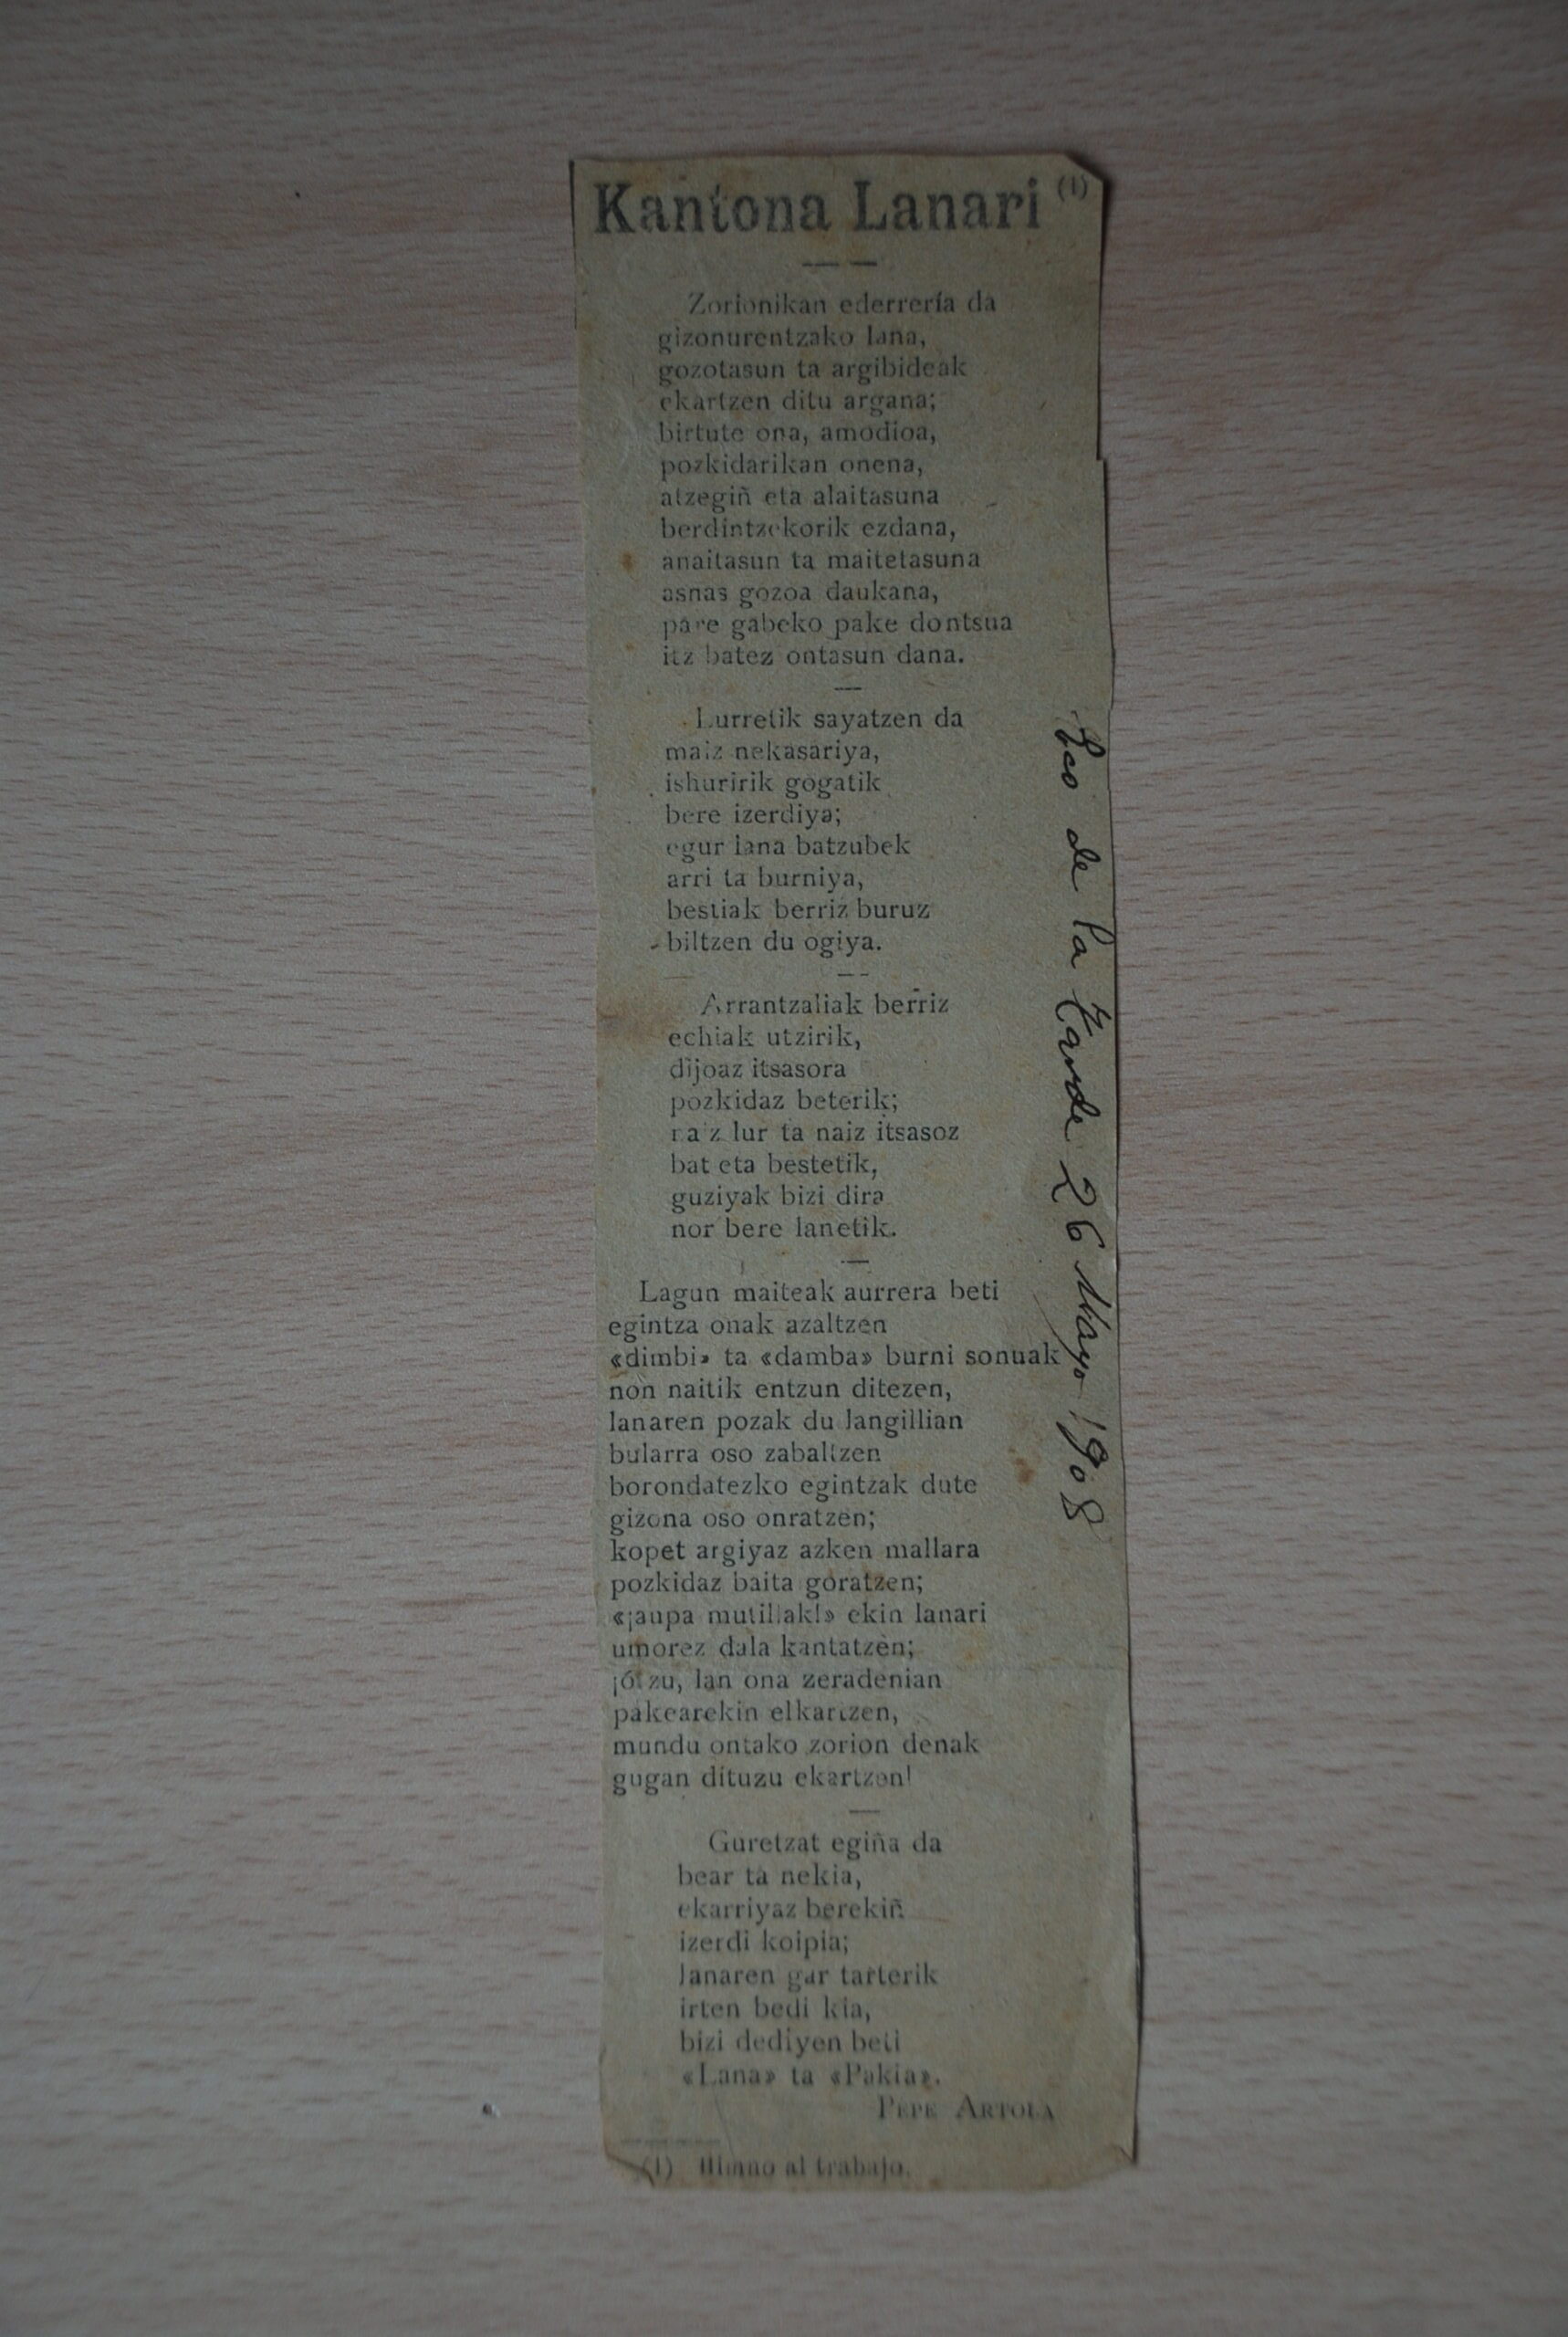 Kantona Lanari (1)
Zorionikan ederrería da
gizonurentzako lana,
gozotasun ta argibideak
ekartzen ditu argana;
birtute ona, amodioa,
pozkidarikan onena,
atzegiñ eta alaitasuna
berdintzekorik ezdana,
anaitasun ta maitetasuna
asnas gozoa daukana,
pare gabeko pake dontsua
itz batez ontasun dana.
Lurretik sayatzen da
maiz nekasariya,
ishuririk gogatik
bere izerdiya;
egur lana batzubek
arri ta burniya,
bestiak berriz buruz
biltzen du ogiya.
Arrantzaliak berriz
echiak utzirik,
dijoaz itsasora
pozkidaz beterik;
naiz lur ta naiz itsasoz
bat eta bestetik,
guziyak bizi dira
nor bere lanetik.
Lagun maiteak aurrera beti
egintza onak azaltzen
«dimbi» ta «damba» burni sonuak
non naitik entzun ditezen,
lanaren pozak du langillian
bularra oso zabaltzen
borondatezko egintzak dute
gizona oso onratzen;
kopet argiyaz azken mallara
pozkidaz baita goratzen;
«¡aupa mutillak!» ekin lanari
umorez dala kantatzen;
¡ó! zu, lan ona zeradenian
pakearekin elkartzen,
mundu ontako zorion denak
gugan dituzu ekartzen!
Guretzat egiña da
bear ta nekia,
ekarriyaz berekiñ
izerdi koipia;
lanaren gar tarterik
irten bedi kia,
bizi dediyen beti
«Lana» ta «Pakia».
PEPE ARTOLA
(1) Himno al trabajo.
Eco de la Tarde 26 Mayo 1908